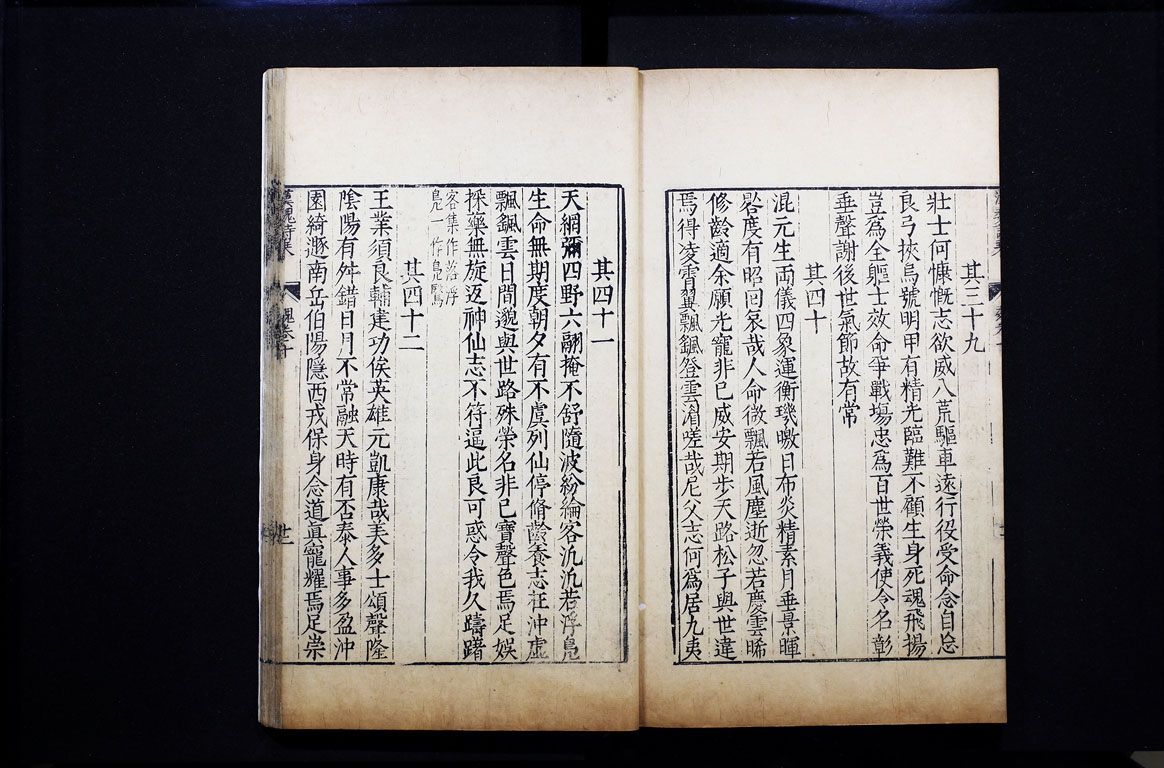 其三十九
壯士何慷慨志欲威八荒驅車遠行役受命念自忘
良弓挾烏號明甲有精光臨難不顧生身死魂飛揚
豈爲全軀士效命爭戰塲忠爲百世榮義使令名彰
垂聲謝後世氣節故有常
其四十
混元生兩儀四象運衡璣曒日布炎精素月垂景暉
晷度有昭回哀哉人命微飄若風塵逝忽若慶雲晞
修齡適余願光寵非己威安期步天路松子與世違
焉得凌霄翼飄颻登雲湄嗟哉尼父志何爲居九夷
其四十一
天網彌四野六翮掩不舒隨波紛綸客汎汎若浮鳧
生命無期度朝夕有不虞列仙停脩齡養志在沖虛
飄颻雲日間邈與世路殊榮名非己寶聲色焉足娛
採藥無旋返神仙志不符逼此良可惑令我久躊躇
客集作若浮
鳧一作鳧鷖
其四十二
王業須良輔建功俟英雄元凱康哉美多士頌聲隆
陰陽有舛錯日月不常融天時有否泰人事多盈沖
園綺遯南岳伯陽隱西戎保身念道眞寵耀焉足崇
漢魏詩集
魏卷十